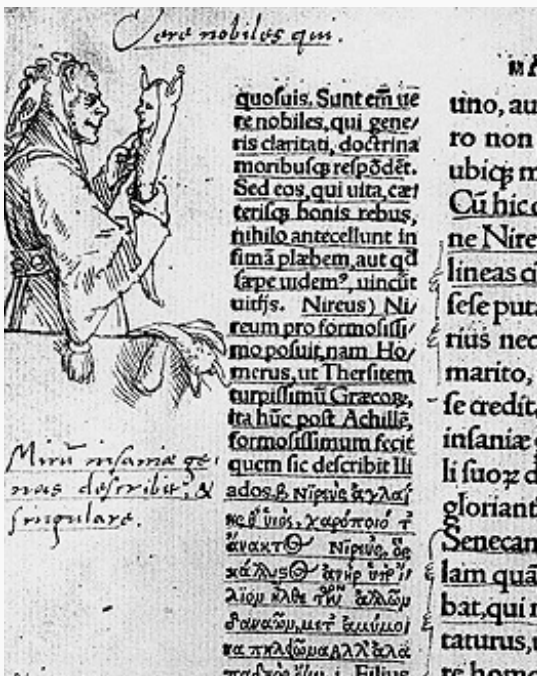 Vere nobiles qui.
quoſuis. Sunt em̄ ue
re nobiles, qui gene/
ris claritati, doctrina
moribusꝗ reſpōdēt.
Sed eos, qui uita, cæt
terisꝗ bonis rebus,
nihilo antecellunt in
fimā plæbem, aut qđ
ſæpe uidem⁹, uinciūt
uitijs. Nireus) Ni/
reum pro formoſiſſi/
mo poſuit, nam Ho/
merus, ut Therſitem
turpiſſimū Græcoꝝ,
ita hūc poſt Achillē,
formoſiſſimum fecit
quem ſic deſcribit Ili
ados. β Νῖρεὺς ἀγλαΐ
ης θ' υἱὸς, χαρόποιό τ'
ἄνακτος Νιρεὺς, ὃς
ἀνὴρ ὑπ'
ἦλθε τῶν ἄλλων
Δαναῶν, μετ' ἀμύμο
ἀλα
i. Filius
Mirū inſaniæ ge,
nus deſcribit, &
ſingulare.
uno, au
ro non
ubiꝗ m
Cū hic c
ne Nire
lineas ci
ſeſe puta
rius nec
marito,
ſe credit,
inſaniæ g
li ſuoꝝ d
gloriant
Senecam
lam quā
bat, qui r
taturus, u
re homo